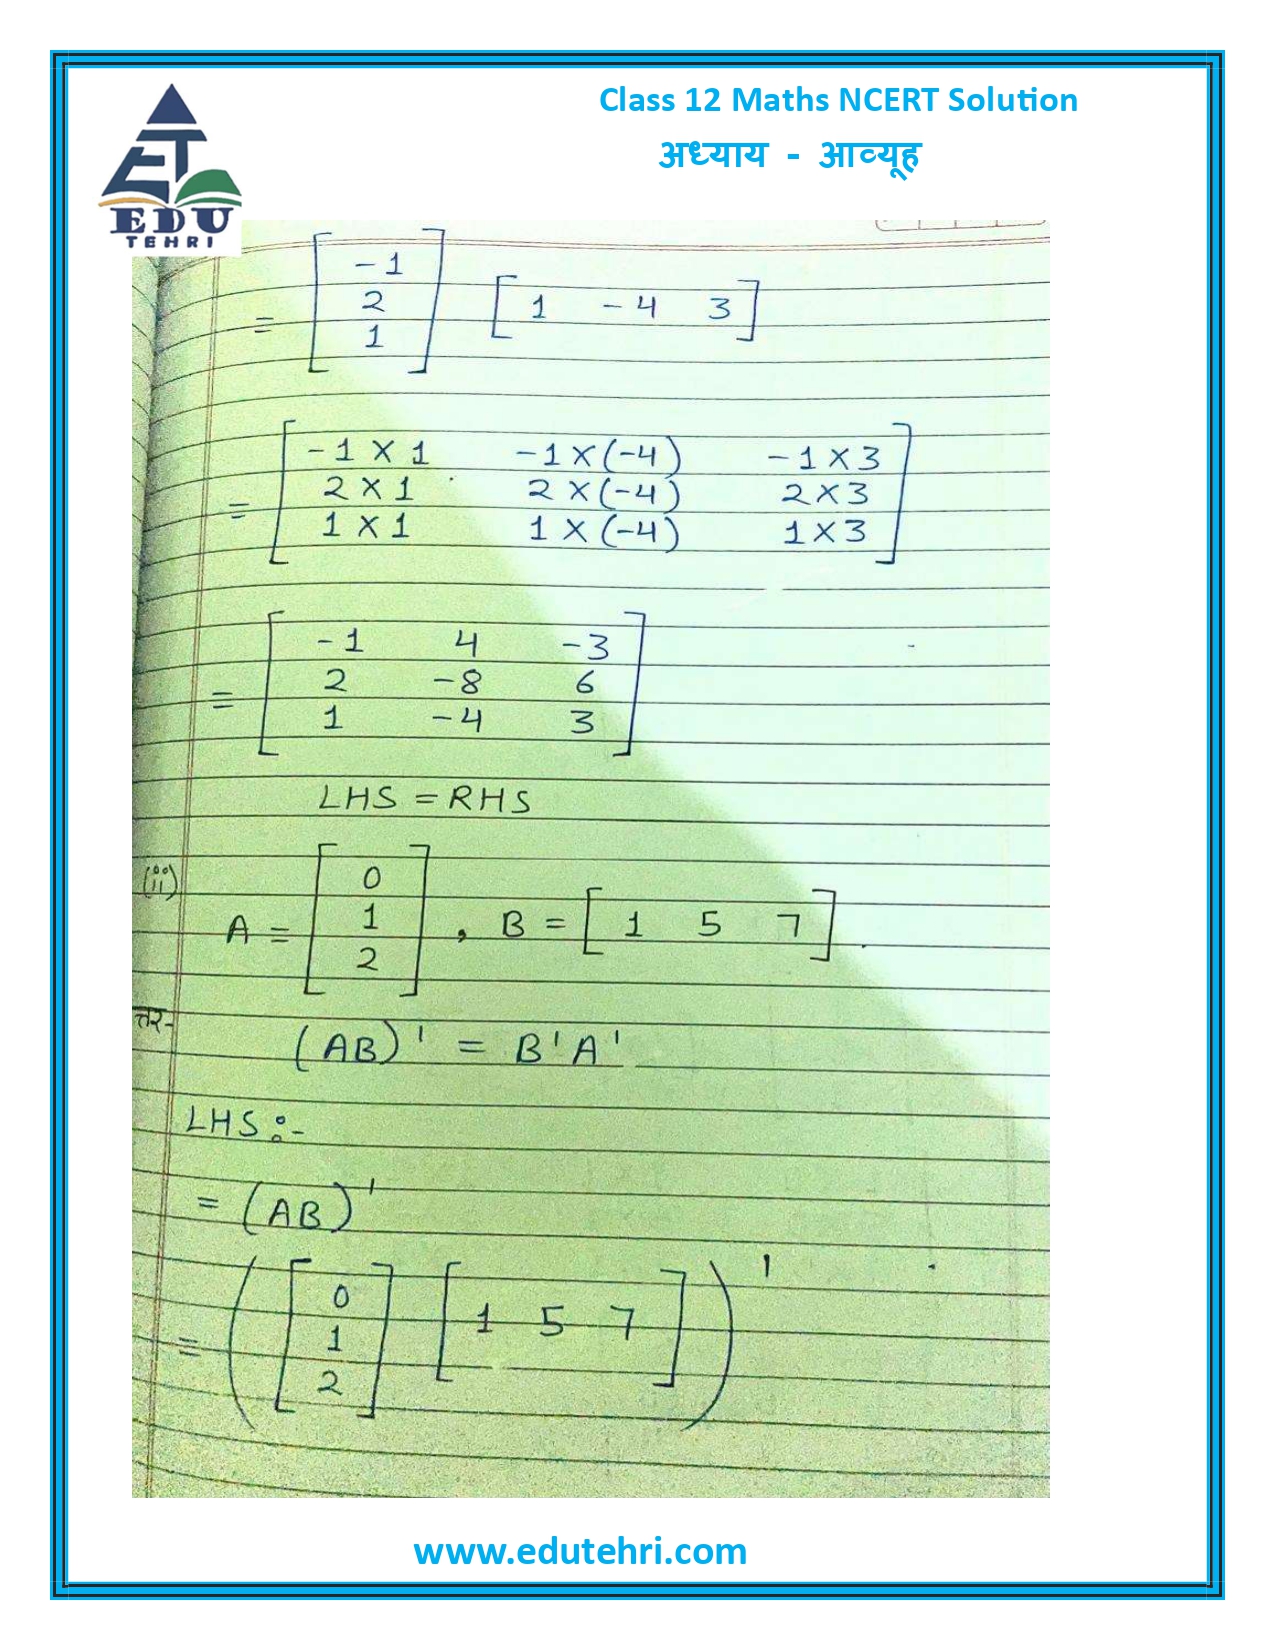 Class 12 Maths NCERT Solution
अध्याय - आव्यूह
EDU
TEHRI
= [ -1 2 1 ] [ 1 -4 3 ]
= [ -1 × 1 -1 × (-4) -1 × 3
2 × 1 2 × (-4) 2 × 3
1 × 1 1 × (-4) 1 × 3 ]
= [ -1 4 -3
2 -8 6
1 -4 3 ]
LHS = RHS
(ii)
A = [ 0 1 2 ] , B = [ 1 5 7 ] .
त्तर-
(AB)' = B'A'
LHS :-
= (AB)'
= ( [ 0 1 2 ] [ 1 5 7 ] )'
www.edutehri.com